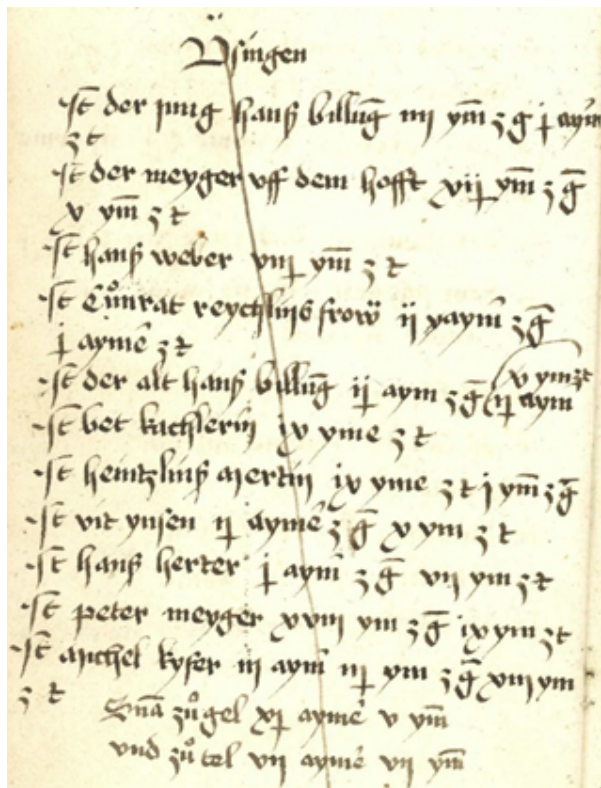 Üsingen
It der jung hanß billing iiij ym̄ z g j aym
z t
It der meyger vff dem hofft vij ym̄ z ḡ
v ym̄ z t
It hanß weber viij ym̄ z t
It Cůnrat reychlings frow ij yaym̄ z ḡ
j aymē z t
It der alt hanß billing ij aym z ḡ v ym z t
It bet kachlerin ix yme z t
It heintzlinß mertin ix yme z t j ym̄ z ḡ
It vit ynsen ij aymē z ḡ x ym z t
It hanß herter j aym̄ z ḡ vij ym z t
It peter meyger xviij ym z ḡ ix ym z t
It michel kyser iij aym̄ ij ym z ḡ xiiij ym
z t
Sm̄a zů gel xj aymē v ym̄
vnd zů tel vij aymē vij ym̄